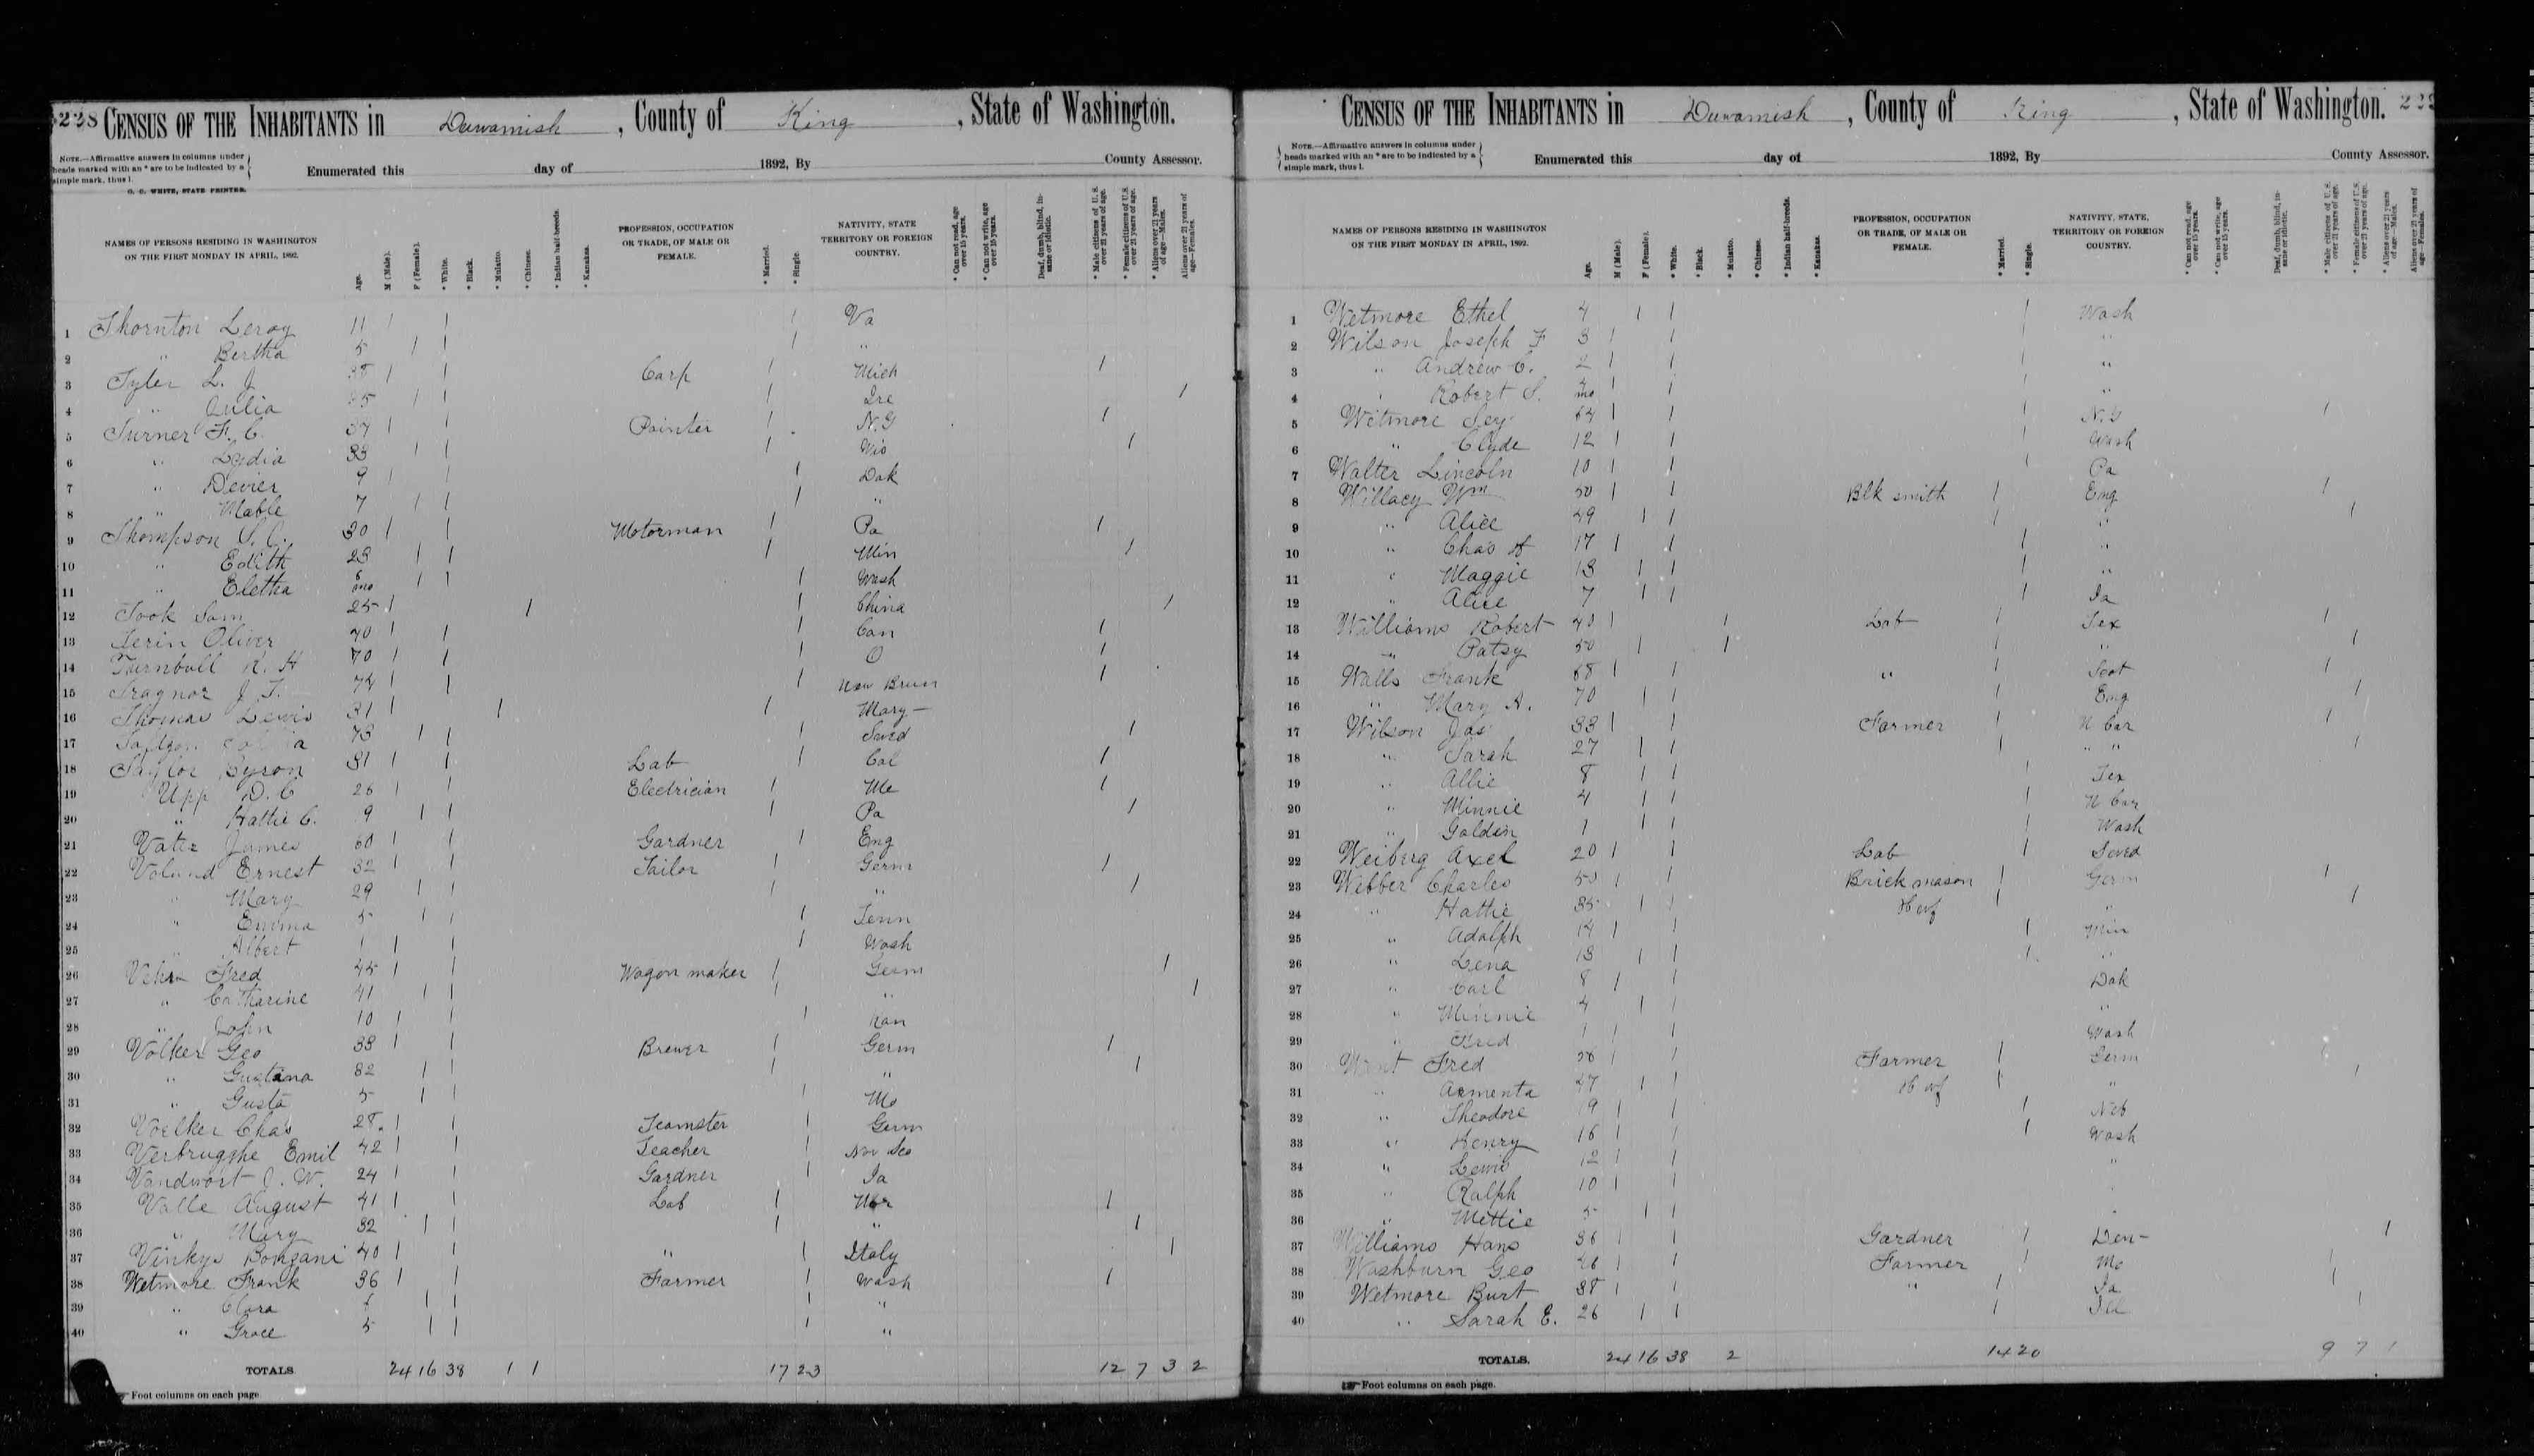 238 CENSUS OF THE INHABITANTS in Duwamish, County of King, State of Washington.
NOTE.—Affirmative answers in columns under heads marked with an * are to be indicated by a simple mark, thus 1.
Enumerated this day of 1892, By County Assessor.
O. C. WHITE, STATE PRINTER.
NAMES OF PERSONS RESIDING IN WASHINGTON ON THE FIRST MONDAY IN APRIL, 1892. Age. M (Male). F (Female). * White. * Black. * Mulatto. * Chinese. * Indian half-breeds. * Kanakas. PROFESSION, OCCUPATION OR TRADE, OF MALE OR FEMALE. * Married. * Single. NATIVITY, STATE TERRITORY OR FOREIGN COUNTRY. * Can not read, age over 15 years. * Can not write, age over 15 years. Deaf, dumb, blind, insane or idiotic. * Male citizens of U. S. over 21 years of age. * Female citizens of U. S. over 21 years of age. * Aliens over 21 years of age—Males. Aliens over 21 years of age—Females.
1 Thornton Leroy 11 1 1 1 Va
2 " Bertha 5 1 1 1 "
3 Tyler L. J. 38 1 1 Carp 1 Mich 1
4 " Julia 1 1 1 Ire 1
5 Turner F. C. 37 1 1 Painter 1 N.Y 1
6 " Lydia 33 1 1 1 Wis 1
7 " Devier 9 1 1 1 Dak
8 " Mable 7 1 1 1 "
9 Thompson S. C. 30 1 1 Motorman 1 Pa 1
10 " Edith 23 1 1 1 Min 1
11 " Eletha mo 1 1 1 Wash
12 Took Sam 25 1 1 1 China 1
13 Terin Oliver 40 1 1 1 Can 1
14 Turnbull R. H 70 1 1 1 O 1
15 Traynor J. T. 74 1 1 1 New Bruns 1
16 Thomas Lewis 31 1 1 1 Mary—
17 73 1 1 1 Swed 1
18 Taylor Byron 31 1 1 Lab 1 Cal 1
19 Upp D. C 26 1 1 Electrician 1 Me 1
20 " Hattie C. 9 1 1 1 Pa 1
21 Vater James 60 1 1 Gardner 1 Eng
22 Volund Ernest 32 1 1 Tailor 1 Germ 1
23 " Mary 29 1 1 1 " 1
24 " Emma 5 1 1 1 Tenn
25 " Albert 1 1 1 1 Wash
26 Fred 45 1 1 Wagon maker 1 Germ 1
27 " Catharine 41 1 1 1 " 1
28 " John 10 1 1 1 Kan
29 Volker Geo 33 1 1 Brewer 1 Germ 1
30 " Gustana 32 1 1 1 " 1
31 " Gusta 5 1 1 1 Mo
32 Voelker Chas 28. 1 1 Teamster 1 Germ
33 Verbrugghe Emil 42 1 1 Teacher 1 Nov Sco
34 Vandwort J. W. 24 1 1 Gardner 1 Ia
35 Valle August 41 1 1 Lab 1 Nor 1
36 " Mary 32 1 1 1 " 1
37 Vinkys Bongani 40 1 1 " 1 Italy 1
38 Wetmore Frank 36 1 1 Farmer 1 Wash 1
39 " Clara 1 1 1 "
40 " Grace 5 1 1 1 "
TOTALS. 24 16 38 1 1 17 23 12 7 3 2
Foot columns on each page.
CENSUS OF THE INHABITANTS in Duwamish, County of King, State of Washington.
NOTE.—Affirmative answers in columns under heads marked with an * are to be indicated by a simple mark, thus 1.
Enumerated this day of 1892, By County Assessor.
NAMES OF PERSONS RESIDING IN WASHINGTON ON THE FIRST MONDAY IN APRIL, 1892. Age. M (Male). F (Female). * White. * Black. * Mulatto. * Chinese. * Indian half-breeds. * Kanakas. PROFESSION, OCCUPATION OR TRADE, OF MALE OR FEMALE. * Married. * Single. NATIVITY, STATE, TERRITORY OR FOREIGN COUNTRY. * Can not read, age over 15 years. * Can not write, age over 15 years. Deaf, dumb, blind, insane or idiotic. * Male citizens of U. S. over 21 years of age. * Female citizens of U. S. over 21 years of age. * Aliens over 21 years of age—Males. Aliens over 21 years of age—Females.
1 Wetmore Ethel 4 1 1 1 Wash
2 Wilson Joseph F 3 1 1 1 "
3 " Andrew C. 2 1 1 1 "
4 " Robert S. mo 1 1 1 "
5 Wetmore Sey 64 1 1 1 N.Y 1
6 " Clyde 12 1 1 1 Wash
7 Walter Lincoln 10 1 1 1 Pa
8 Willacy Wm 50 1 1 Blk smith 1 Eng 1
9 " Alice 49 1 1 1 " 1
10 " Chas A 17 1 1 1 "
11 " Maggie 13 1 1 1 "
12 " Alice 7 1 1 1 Ia
13 Williams Robert 40 1 1 Lab 1 Tex 1
14 " Patsy 50 1 1 1 " 1
15 Walls Frank 68 1 1 " 1 Scot 1
16 " Mary A. 70 1 1 1 Eng 1
17 Wilson Jas 33 1 1 Farmer 1 N Car 1
18 " Sarah 27 1 1 1 " " 1
19 " Allie 8 1 1 1 Tex
20 " Minnie 4 1 1 1 N Car
21 " Golden 1 1 1 1 Wash
22 Weiberg Axel 20 1 1 Lab 1 Swed
23 Webber Charles 50 1 1 Brick mason 1 Germ 1
24 " Hattie 35 1 1 H wf 1 " 1
25 " Adalph 14 1 1 1 Min
26 " Lena 13 1 1 1 "
27 " Carl 8 1 1 Dak
28 " Minnie 4 1 1 "
29 " Fred 1 1 1 Wash
30 Fred 1 1 Farmer 1 Germ 1
31 " Armenta 47 1 1 H wf 1 " 1
32 " Theodore 19 1 1 1 Neb
33 " Henry 16 1 1 1 Wash
34 " Lewis 12 1 1 "
35 " Ralph 10 1 1 "
36 " Mettie 5 1 1 "
37 Williams Hans 36 1 1 Gardner 1 Den— 1
38 Washburn Geo 46 1 1 Farmer 1 Mo 1
39 Wetmore Burt 38 1 1 " 1 Ia 1
40 " Sarah E. 26 1 1 1 Ill 1
TOTALS. 24 16 38 2 14 20 9 7 1
Foot columns on each page.